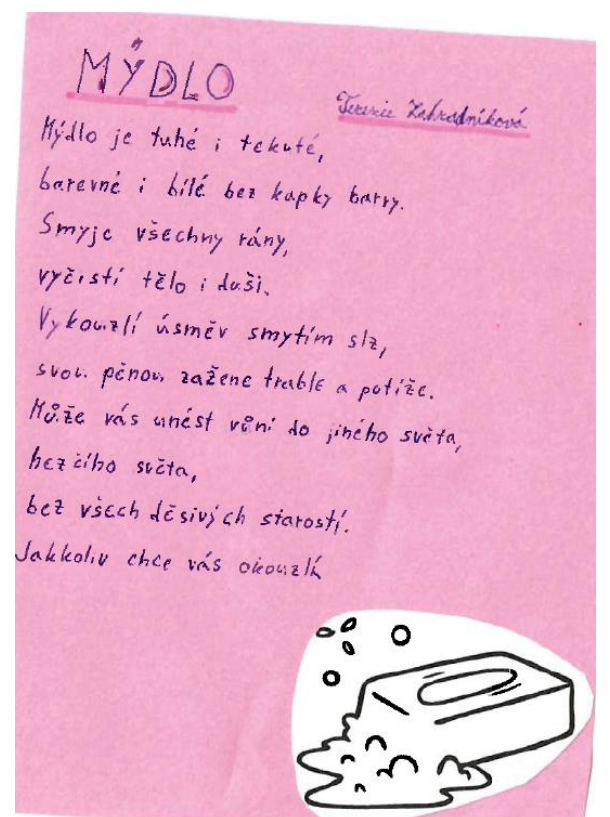 MÝDLO
Terezie Zahradníková
Mýdlo je tuhé i tekuté,
barevné i bílé bez kapky barvy.
Smyje všechny rány,
vyčistí tělo i duši.
Vykouzlí úsměv smytím slz,
svou pěnou zažene trable a potíže.
Může vás unést vůní do jiného světa,
hezčího světa,
bez všech děsivých starostí.
Jakkoliv chce vás okouzlí